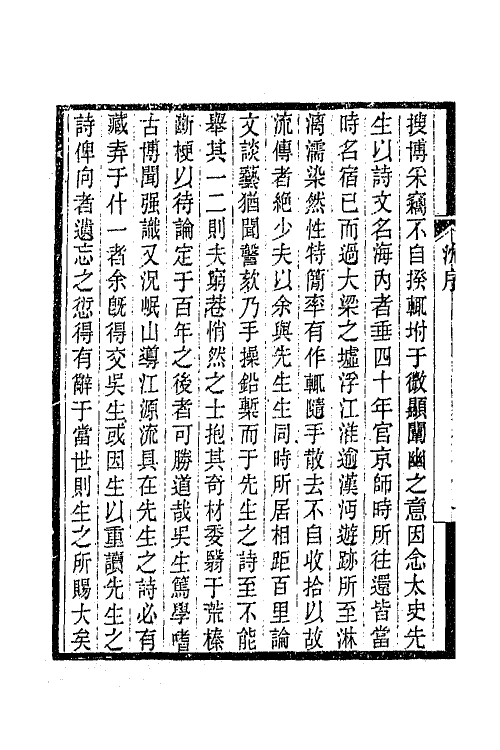 沈序
搜博采竊不自揆輒坿于微顯闡幽之意因念太史先
生以詩文名海內者垂四十年官京師時所往還皆當
時名宿已而過大梁之墟浮江淮逾漢沔遊跡所至淋
漓濡染然性特簡率有作輒隨手散去不自收拾以故
流傳者絶少夫以余與先生生同時所居相距百里論
文談藝猶聞謦欬乃手操鉛槧而于先生之詩至不能
舉其一二則夫窮巷悄然之士抱其奇材委翳于荒榛
斷梗以待論定于百年之後者可勝道哉吳生篤學嗜
古博聞强識又況岷山導江源流具在先生之詩必有
藏弆于什一者余旣得交吳生或因生以重讀先生之
詩俾向者遺忘之愆得有辭于當世則生之所賜大矣